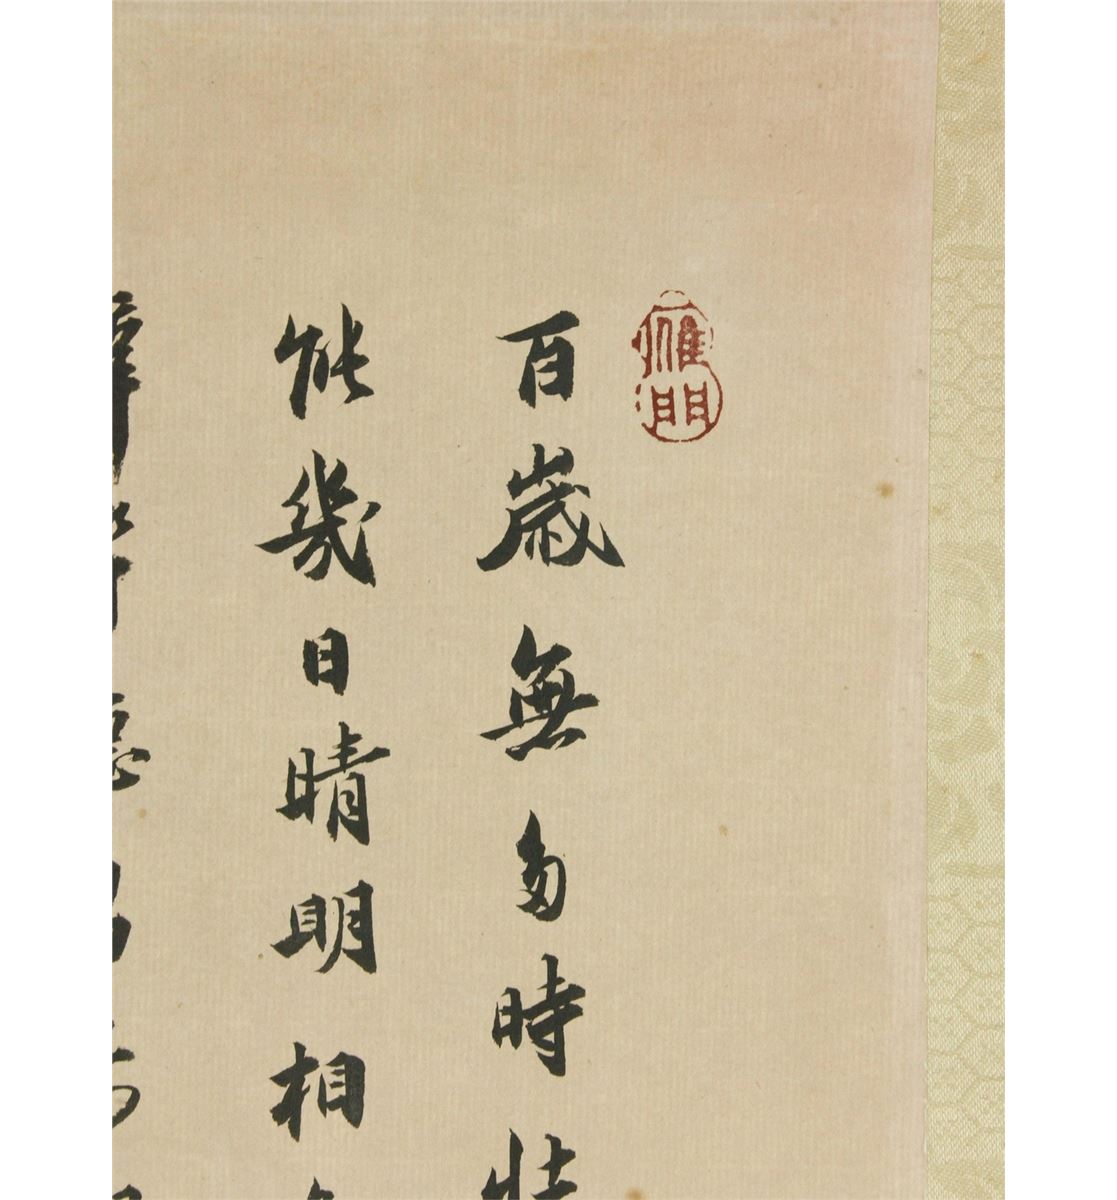 雁門
百歲無多時壯
能幾日晴明相